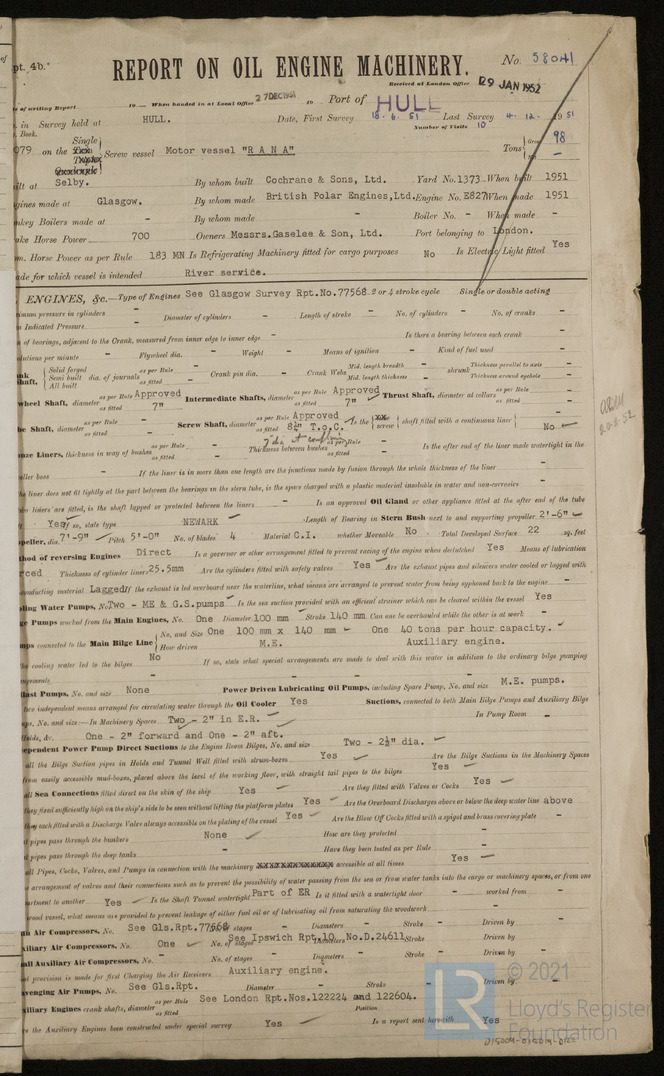 pt. 4b.
REPORT ON OIL ENGINE MACHINERY.
No. 58041
Received at London Office 29 JAN 1952
of writing Report 19 When handed in at Local Office 27 DEC 1951 19 Port of HULL
in Survey held at HULL. Date, First Survey 18. 6. 51 Last Survey 4. 12. 1951
Book. Number of Visits 10
Single
979 on the Screw vessel Motor vessel "RANA" Tons Gross 98
-
built at Selby. By whom built Cochrane & Sons, Ltd. Yard No. 1373 When built 1951
gines made at Glasgow. By whom made British Polar Engines, Ltd. Engine No. E827 When made 1951
nkey Boilers made at - By whom made - Boiler No. - When made -
ake Horse Power 700 Owners Messrs. Gaselee & Son, Ltd. Port belonging to London.
m. Horse Power as per Rule 183 MN Is Refrigerating Machinery fitted for cargo purposes No Is Electric Light fitted Yes
ade for which vessel is intended River service.
ENGINES, &c.—Type of Engines See Glasgow Survey Rpt.No.77568 2 or 4 stroke cycle Single or double acting
ximum pressure in cylinders - Diameter of cylinders - Length of stroke - No. of cylinders - No. of cranks -
n Indicated Pressure -
n of bearings, adjacent to the Crank, measured from inner edge to inner edge - Is there a bearing between each crank -
olutions per minute - Flywheel dia. - Weight - Means of ignition - Kind of fuel used -
Solid forged
Semi built
All built
dia. of journals as per Rule as fitted - Crank pin dia. - Crank Webs Mid. length breadth - Mid. length thickness - shrunk Thickness parallel to axis - Thickness around eyehole -
wheel Shaft, diameter as per Rule Approved as fitted 7" Intermediate Shafts, diameter as per Rule Approved as fitted 7" Thrust Shaft, diameter at collars as per Rule - as fitted
be Shaft, diameter as per Rule - as fitted Screw Shaft, diameter as per Rule Approved as fitted 8¼" T.o.C. Is the screw shaft fitted with a continuous liner No
7" dia at coupling
nze Liners, thickness in way of bushes as per Rule - as fitted Thickness between bushes as per Rule - as fitted Is the after end of the liner made watertight in the
eller boss - If the liner is in more than one length are the junctions made by fusion through the whole thickness of the liner -
the liner does not fit tightly at the part between the bearings in the stern tube, is the space charged with a plastic material insoluble in water and non-corrosive -
two liners are fitted, is the shaft lapped or protected between the liners - Is an approved Oil Gland or other appliance fitted at the after end of the tube
Yes If so, state type NEWARK Length of Bearing in Stern Bush next to and supporting propeller 2'-6"
peller, dia. 7'-9" Pitch 5'-0" No. of blades 4 Material C.I. whether Moveable No Total Developed Surface 22 sq. feet
thod of reversing Engines Direct Is a governor or other arrangement fitted to prevent racing of the engine when declutched Yes Means of lubrication
rced Thickness of cylinder liners 25.5mm Are the cylinders fitted with safety valves Yes Are the exhaust pipes and silencers water cooled or lagged with
conducting material Lagged If the exhaust is led overboard near the waterline, what means are arranged to prevent water being syphoned back to the engine -
ling Water Pumps, No. Two - ME & G.S. pumps Is the sea suction provided with an efficient strainer which can be cleared within the vessel Yes
ge Pumps worked from the Main Engines, No. One Diameter 100 mm Stroke 140 mm Can one be overhauled while the other is at work -
mps connected to the Main Bilge Line No. and Size One 100 mm x 140 mm One 40 tons per hour capacity.
How driven M.E. Auxiliary engine.
the cooling water led to the bilges No If so, state what special arrangements are made to deal with this water in addition to the ordinary bilge pumping
ngements -
llast Pumps, No. and size None Power Driven Lubricating Oil Pumps, including Spare Pump, No. and size M.E. pumps.
two independent means arranged for circulating water through the Oil Cooler Yes Suctions, connected to both Main Bilge Pumps and Auxiliary Bilge
ps, No. and size:—In Machinery Spaces Two - 2" in E.R. In Pump Room -
Holds, &c. One - 2" forward and One - 2" aft.
ependent Power Pump Direct Suctions to the Engine Room Bilges, No. and size Two - 2½" dia.
all the Bilge Suction pipes in Holds and Tunnel Well fitted with strum-boxes Yes Are the Bilge Suctions in the Machinery Spaces
from easily accessible mud-boxes, placed above the level of the working floor, with straight tail pipes to the bilges Yes
all Sea Connections fitted direct on the skin of the ship Yes Are they fitted with Valves or Cocks Yes
they fixed sufficiently high on the ship's side to be seen without lifting the platform plates Yes Are the Overboard Discharges above or below the deep water line above
they each fitted with a Discharge Valve always accessible on the plating of the vessel Yes Are the Blow Off Cocks fitted with a spigot and brass covering plate -
t pipes pass through the bunkers None How are they protected -
t pipes pass through the deep tanks - Have they been tested as per Rule -
all Pipes, Cocks, Valves, and Pumps in connection with the machinery accessible at all times Yes
e arrangement of valves and their connections such as to prevent the possibility of water passing from the sea or from water tanks into the cargo or machinery spaces, or from one
partment to another Yes Is the Shaft Tunnel watertight Part of ER Is it fitted with a watertight door - worked from -
wood vessel, what means are provided to prevent leakage of either fuel oil or of lubricating oil from saturating the woodwork -
in Air Compressors, No. See Gls.Rpt.77568 No. of stages Diameters Stroke - Driven by -
xiliary Air Compressors, No. One No. of stages See Ipswich Rpt.10. No.D.24611 Diameters Stroke Driven by -
all Auxiliary Air Compressors, No. - No. of stages - Diameters - Stroke - Driven by -
at provision is made for first Charging the Air Receivers Auxiliary engine.
venging Air Pumps, No. See Gls.Rpt. Diameter - Stroke - Driven by -
xiliary Engines crank shafts, diameter as per Rule as fitted See London Rpt.Nos.122224 and 122604. Position
ve the Auxiliary Engines been constructed under special survey Yes Is a report sent herewith Yes
LR
© 2021
Lloyd's Register
Foundation